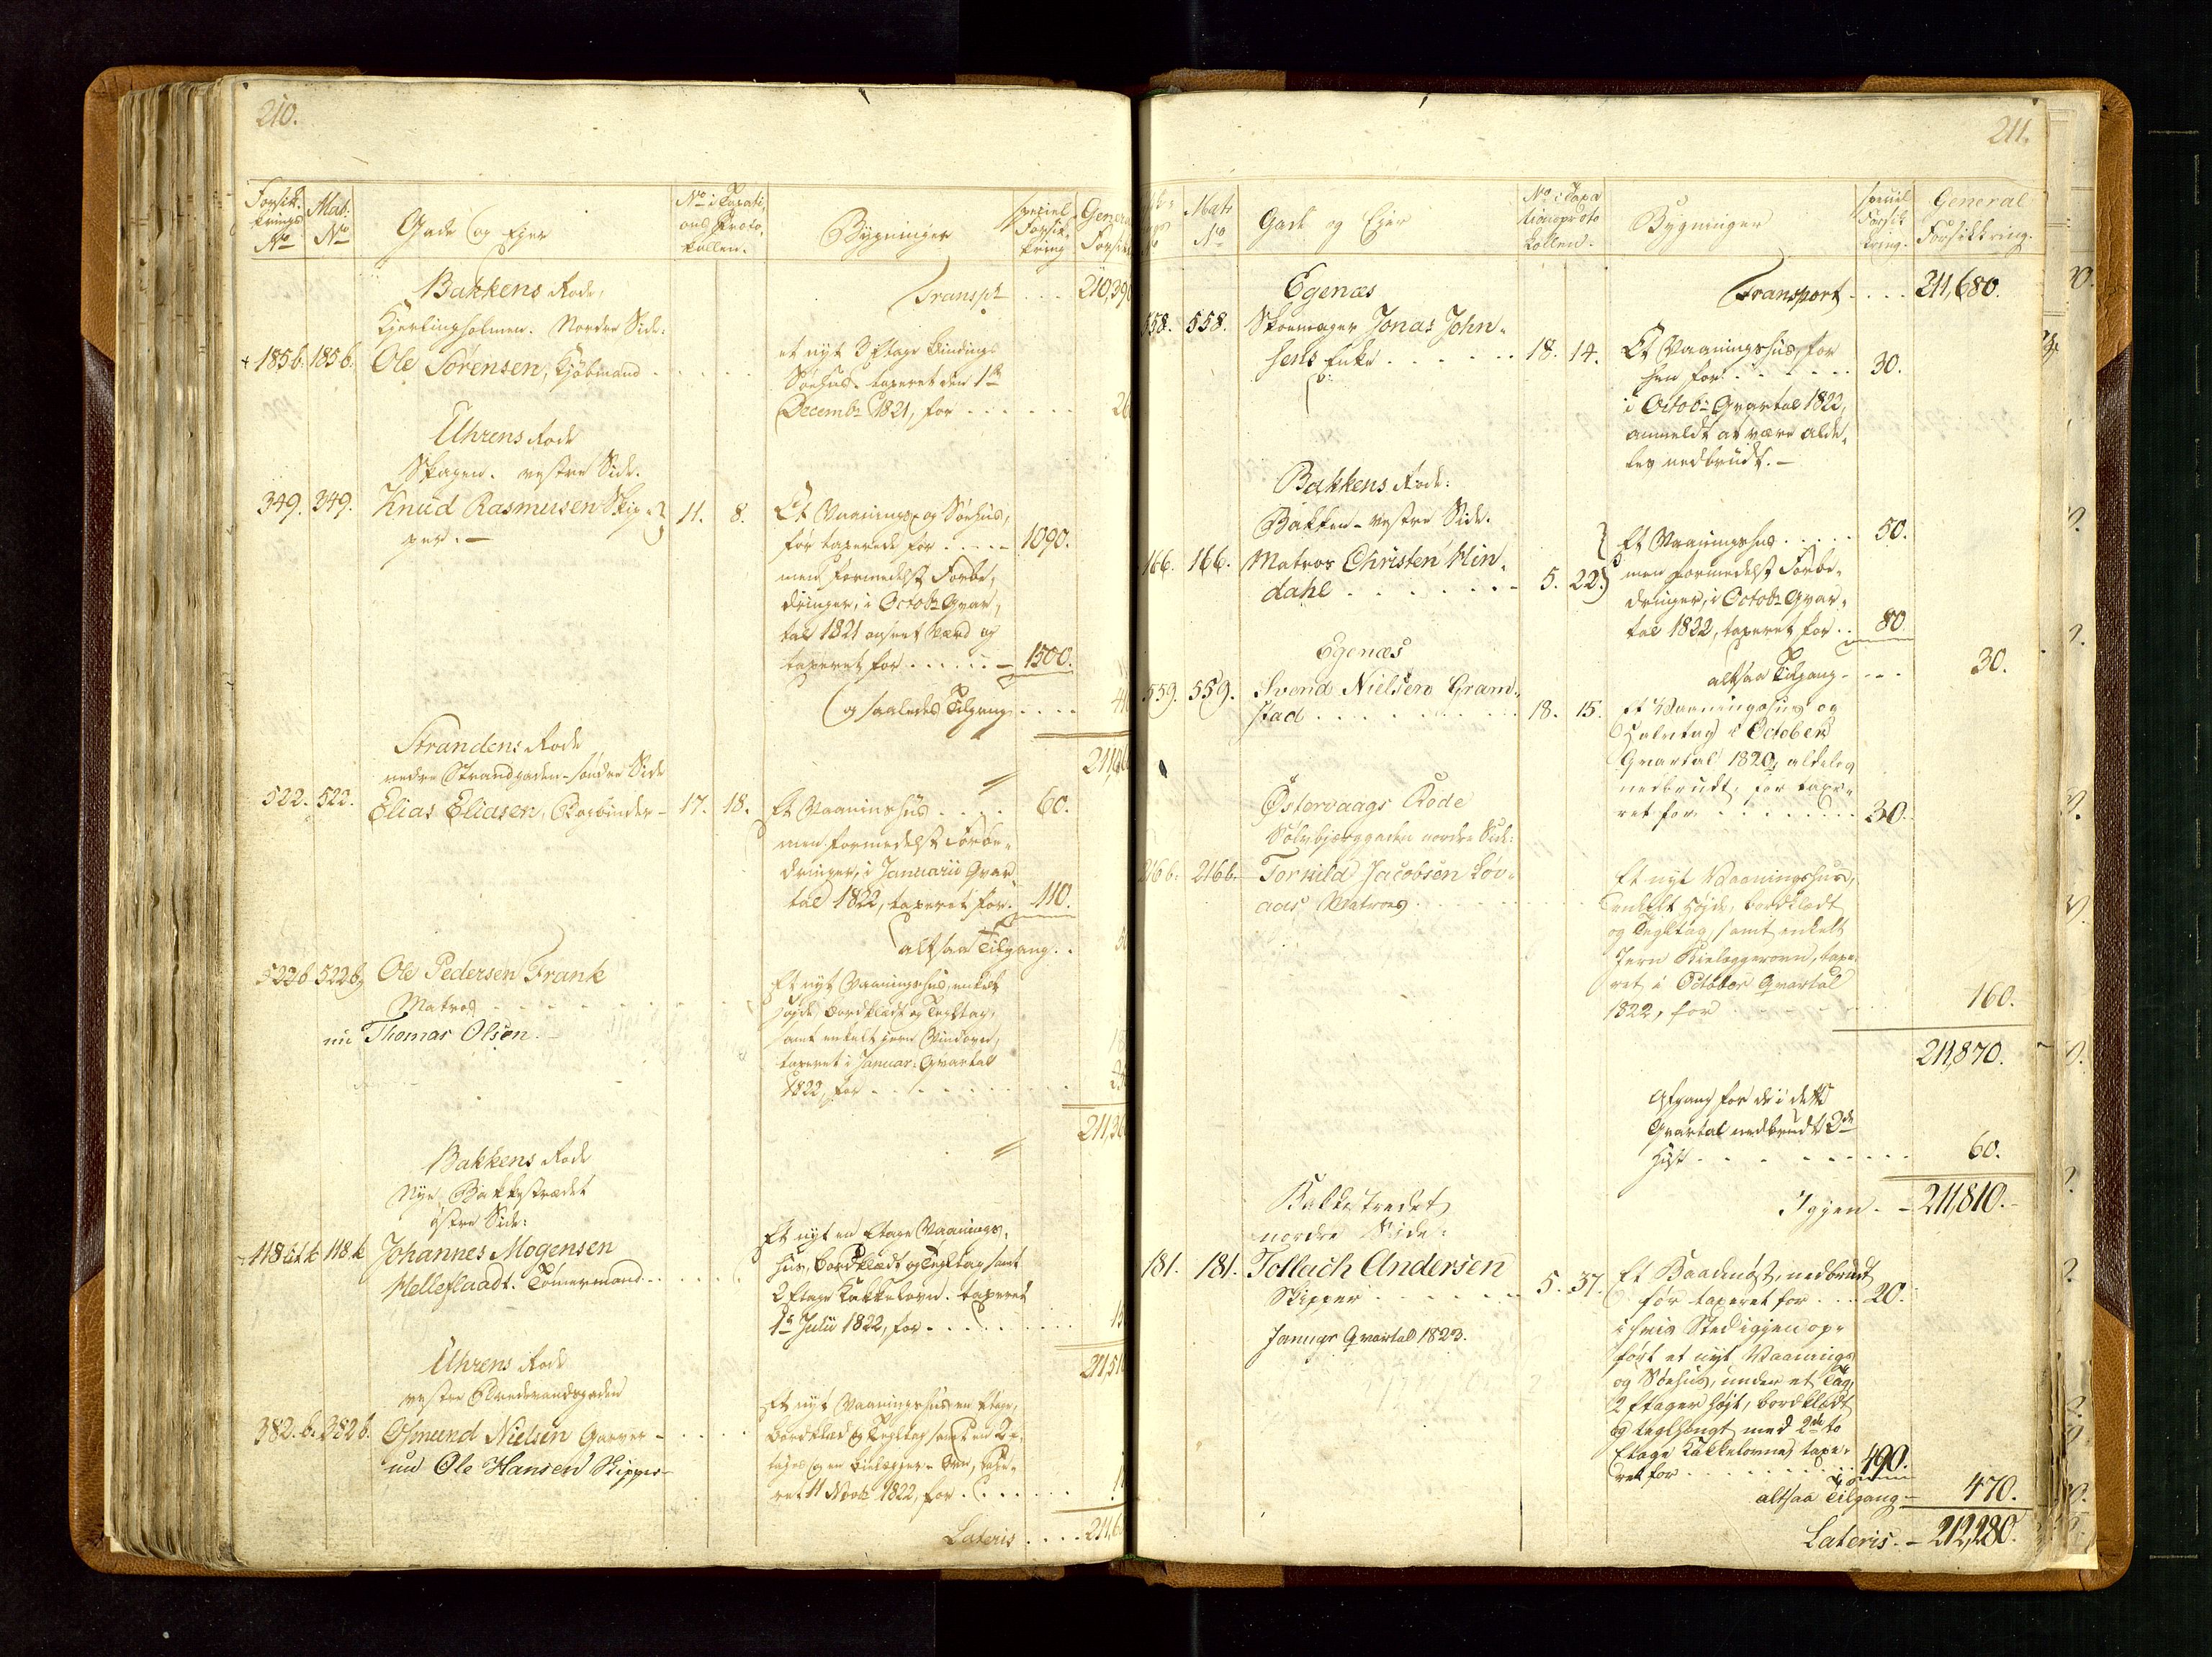 210.
Forsik-
krings
No
Mat:
No
Gade og Ejer
No i Taxati-
ons Proto-
kollen.
Bygninger
special
Forsik-
kring
Genera
Forsik
Bakkens Rode,
Transpt ... 210,390
Kjerlingholmen. Nordre Side:
+ 185 b. 185 b. Ole Sörensen, Kjöbmand
et nyt 3 Etage Bindings
Söehus. taxeret den 1te
Decembr 1821, for . . . . . . 26
Uhrens Rode
Skagen. vestre Side.
349. 349. Knud Rasmusen Skip-
per. —
11. 8.
Et Vaanings og Söehus,
för taxerede for . . . . — 1090.
men formedelst Forbe-
dringer, i Octobr Qvar-
tal 1821 anseet værd og
taxeret for . . . . . . — 1500.
og saaledes Tilgang . . . . 4
211,0
Strandens Rode
nedre Strandgaden - söndre Side
522. 522. Elias Eliasen, Bogbinder — 17. 18.
Et Vaaningshus . . . . 60.
men formedelst Forbe-
dringer, i Januarii Qvar
tal 1822, taxeret for. 110.
altsaa Tilgang . . 5
522 b 522 b, Ole Pedersen Frank
Matros
nu Thomas Olsen.
Et nyt Vaaningshus, enkelt
Höjde, bordklædt og Tegltag,
samt enkelt jern Vindovn,
taxeret i Januar: Qvartal
1822, for
211,3
Bakkens Rode
Nye Bakkestrædet
östre Side:
118 Lit k 118. k Johannes Mogensen
Helleflaadt. Tömermand
Et nyt en Etage Vaanings-
Hus, bordklædt og Tegltag samt
2 Etage Kakkelovn. taxeret
1ste Julii 1822, for . . . . . 15
211,51
Uhrens Rode
vestre Bredevandsgaden
382. b. 382 b. Osmund Nielsen Garver —
nu Ole Hansen Skipper —
Et nyt Vaaningshus en Etage,
bordklæd og Tegltag samt en 2 E-
tages og en Bilægger-Ovn, taxe-
ret 11 Novbr 1822, for
Lateris . . . . 211,6
211.
Mat:
No
Gade og Ejer
No i Taxa
tionsproto
kollen.
Bygninger
special
Forsik
kring.
General
Forsikkring.
Egenæs
Transport . . . . 211,680.
558. 558. Skoemager Jonas John-
sens Enke . . . . . . 18. 14.
Et Vaaningshus, for
hen for . . . . . . . 30.
i Octobr Qvartal 1822,
anmeldt at være alde-
les nedbrudt. —
Bakkens Rode:
Bakken - vestre Side.
166. 166. Matros Christen Min-
dahl . . . . . . . — 5. 22.
Et Vaaningshus . . . . . 50.
men formedelst Forbe-
dringer, i Octobr Qvar-
tal 1822, taxeret for . . 80
altsaa Tilgang . . . . 30.
Egenæs
559. 559. Svend Nielsen Gram-
stad . . . . . . . . . 18. 15.
Et Vaaningshus og
Halvtag i October
Qvartal 1820, aldeles
nedbrudt, för taxe-
ret for . . . . . . . . 30.
Östervaags Rode
Sölvbjerggaden nordre Side:
216 b. 216 b. Torkild Jacobsen Löv-
aas Matros
Et nyt Vaaningshus,
enkelt Höjde, bordklædt
og Tegltag, samt enkelt
Jern Bielæggerovn, taxe-
ret i October Qvartal
1822, for . . . . . . 160.
211,870.
Afgang for de i dette
Qvartal nedbrudt 2de
Huse . . . . . . . . 60.
Igjen. — 211,810. —
Bakkestredet
nordre Side:
181. 181. Tollach Andersen
Skipper . . . . . . . 5. 37.
Januar Qvartal 1823.
Et Baadnöst, nedbrudt
för taxeret for . . . . 20.
i hvis Sted igjen op-
fört et nyt Vaanings
og Söehus, under et Tag,
2 Etager höjt, bordklædt
og teglhængt med 2de to
Etage Kakkelovne, taxe-
ret for . . . . . . . . . 490.
altsaa Tilgang — 470.
Lateris. — 212,280.